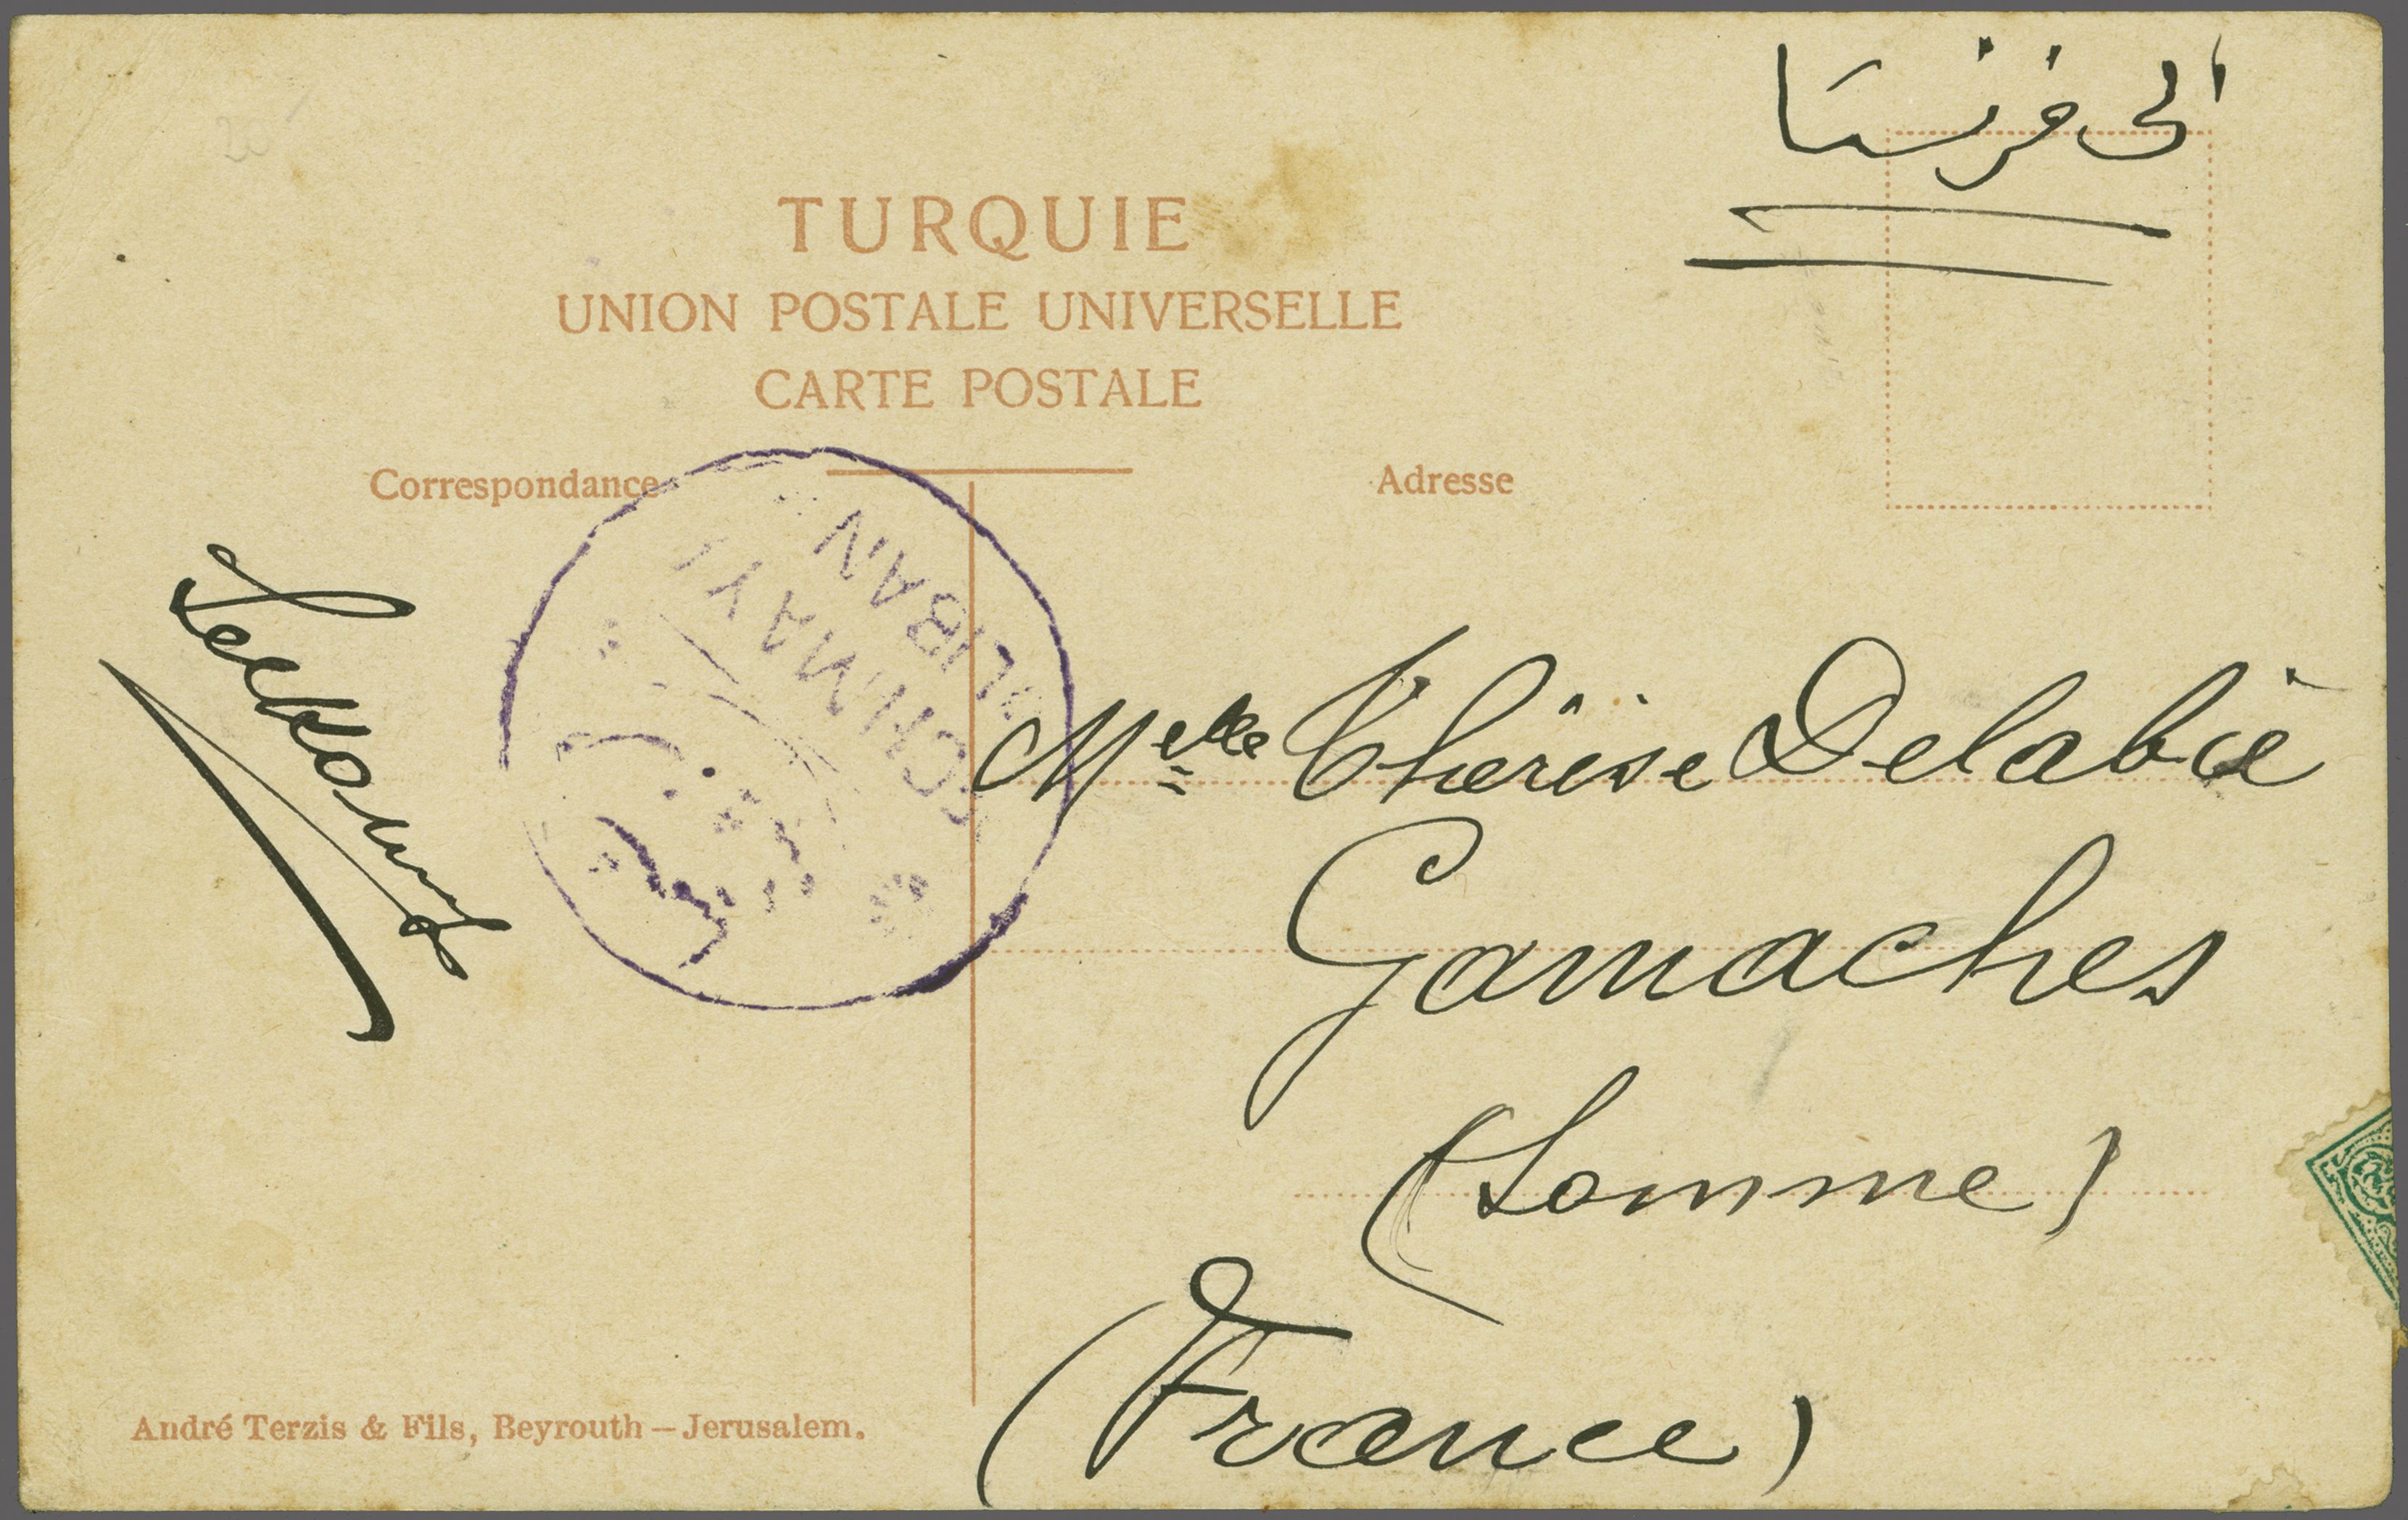 الى فرنسا
TURQUIE
UNION POSTALE UNIVERSELLE
CARTE POSTALE
Correspondance
Adresse
LIBAN
Melle Thérèse Delabie
Gamaches
(Somme)
(France)
André Terzis & Fils, Beyrouth – Jerusalem.